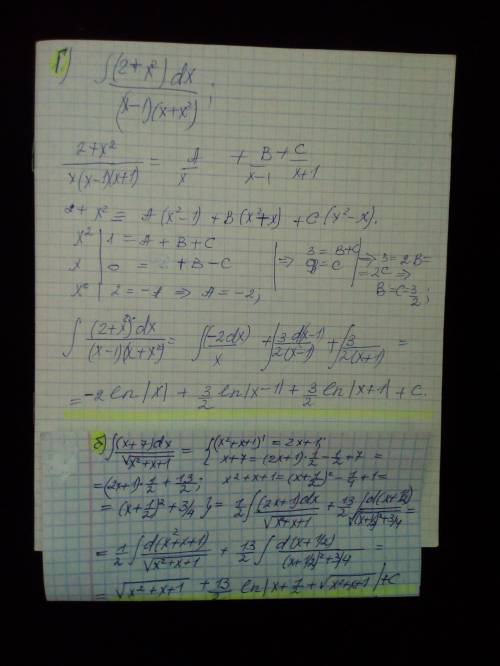 Г.) ∫ (2+x²) dx / (x-1)(x+x²) ;
2+x² / x(x-1)(x+1) = A/x + B/x-1 + C/x+1
2+x² = A(x²-1) + B(x²+x) + C(x²-x).
x² | 1 = A+B+C
x | 0 = B-C
x⁰ | 2 = -A ⇒ A = -2,
⇒ 3 = B+C
B = C
⇒ 3 = 2B =
= 2C ⇒
B=C=3/2 ;
∫ (2+x²) dx / (x-1)(x+x²) = ∫ (-2dx)/x + ∫ 3 d(x-1) / 2(x-1) + ∫ 3 / 2(x+1) =
= -2 ln|x| + 3/2 ln|x-1| + 3/2 ln|x+1| + C.
б) ∫ (x+7)dx / √x²+x+1 = { (x²+x+1)' = 2x+1;
x+7 = (2x+1)·1/2 - 1/2 + 7 =
= (2x+1)·1/2 + 13/2 ; x²+x+1 = (x+1/2)² - 1/4 + 1 =
= (x+1/2)² + 3/4 } = 1/2 ∫ (2x+1)dx / √x²+x+1 + 13/2 ∫ d(x+1/2) / √(x+1/2)²+3/4 =
= 1/2 ∫ d(x²+x+1) / √x²+x+1 + 13/2 ∫ d(x+1/2) / (x+1/2)²+3/4 =
= √x²+x+1 + 13/2 ln|x+1/2+√x²+x+1| + C